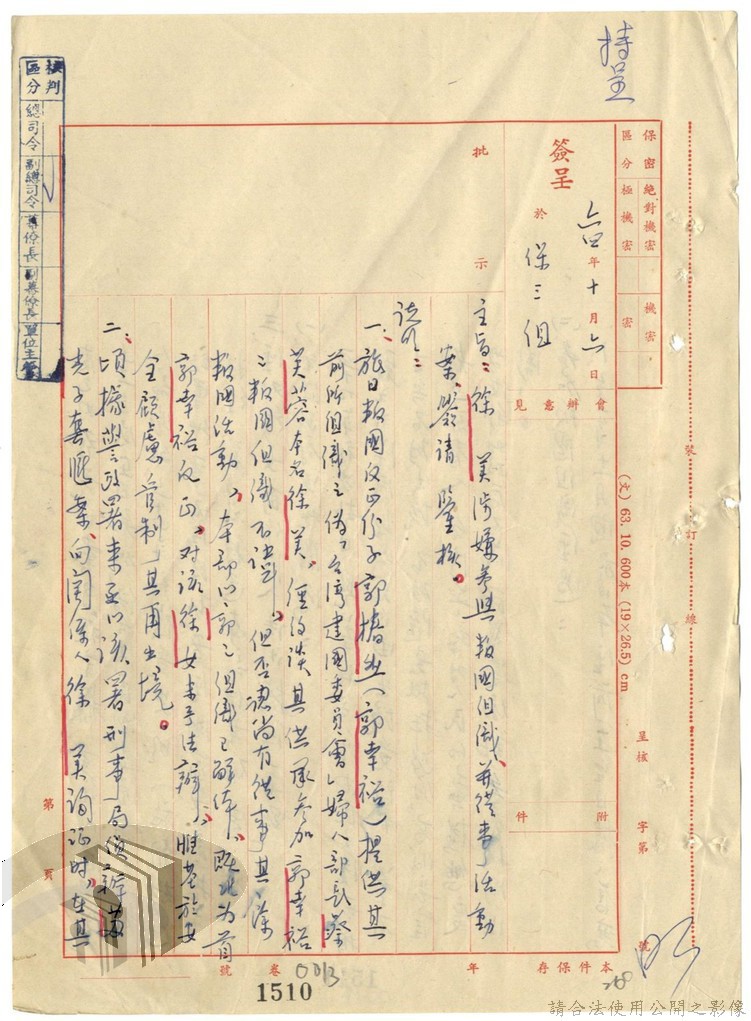 持呈
保密區分
絕對機密
極機密
機密
密
簽呈
六四年十月六日
於保三組
會辦意見
附件
批示
主旨:徐美涉嫌參與叛國組織、并從事活動
案、簽請鑒核。
說明:
一、旅日叛國反正份子郭(郭幸裕)提供其
前所組織之偽「台灣建國委員會」婦人部長蔡
芙蓉本名徐美、經約談其供承參加郭幸裕
之叛國組織不諱、但否認尚有從事其他
叛國活動、本部以郭之組織已解体、既為首
郭幸裕反正、对該徐女未予法辦、惟基於安
全顧慮管制其再出境。
二、頃據警政署來函以該署刑事局偵辦
光子套匯案、向關係人徐美詢証時、在其
核判區分
總司令
副總司令
參謀長
副參謀長
單位主管
裝訂線
(文) 63. 10. 600本 (19×26.5) cm
呈核 字第 號
第 頁
本件保存 年 卷 號
0013
1510
268
請合法使用公開之影像